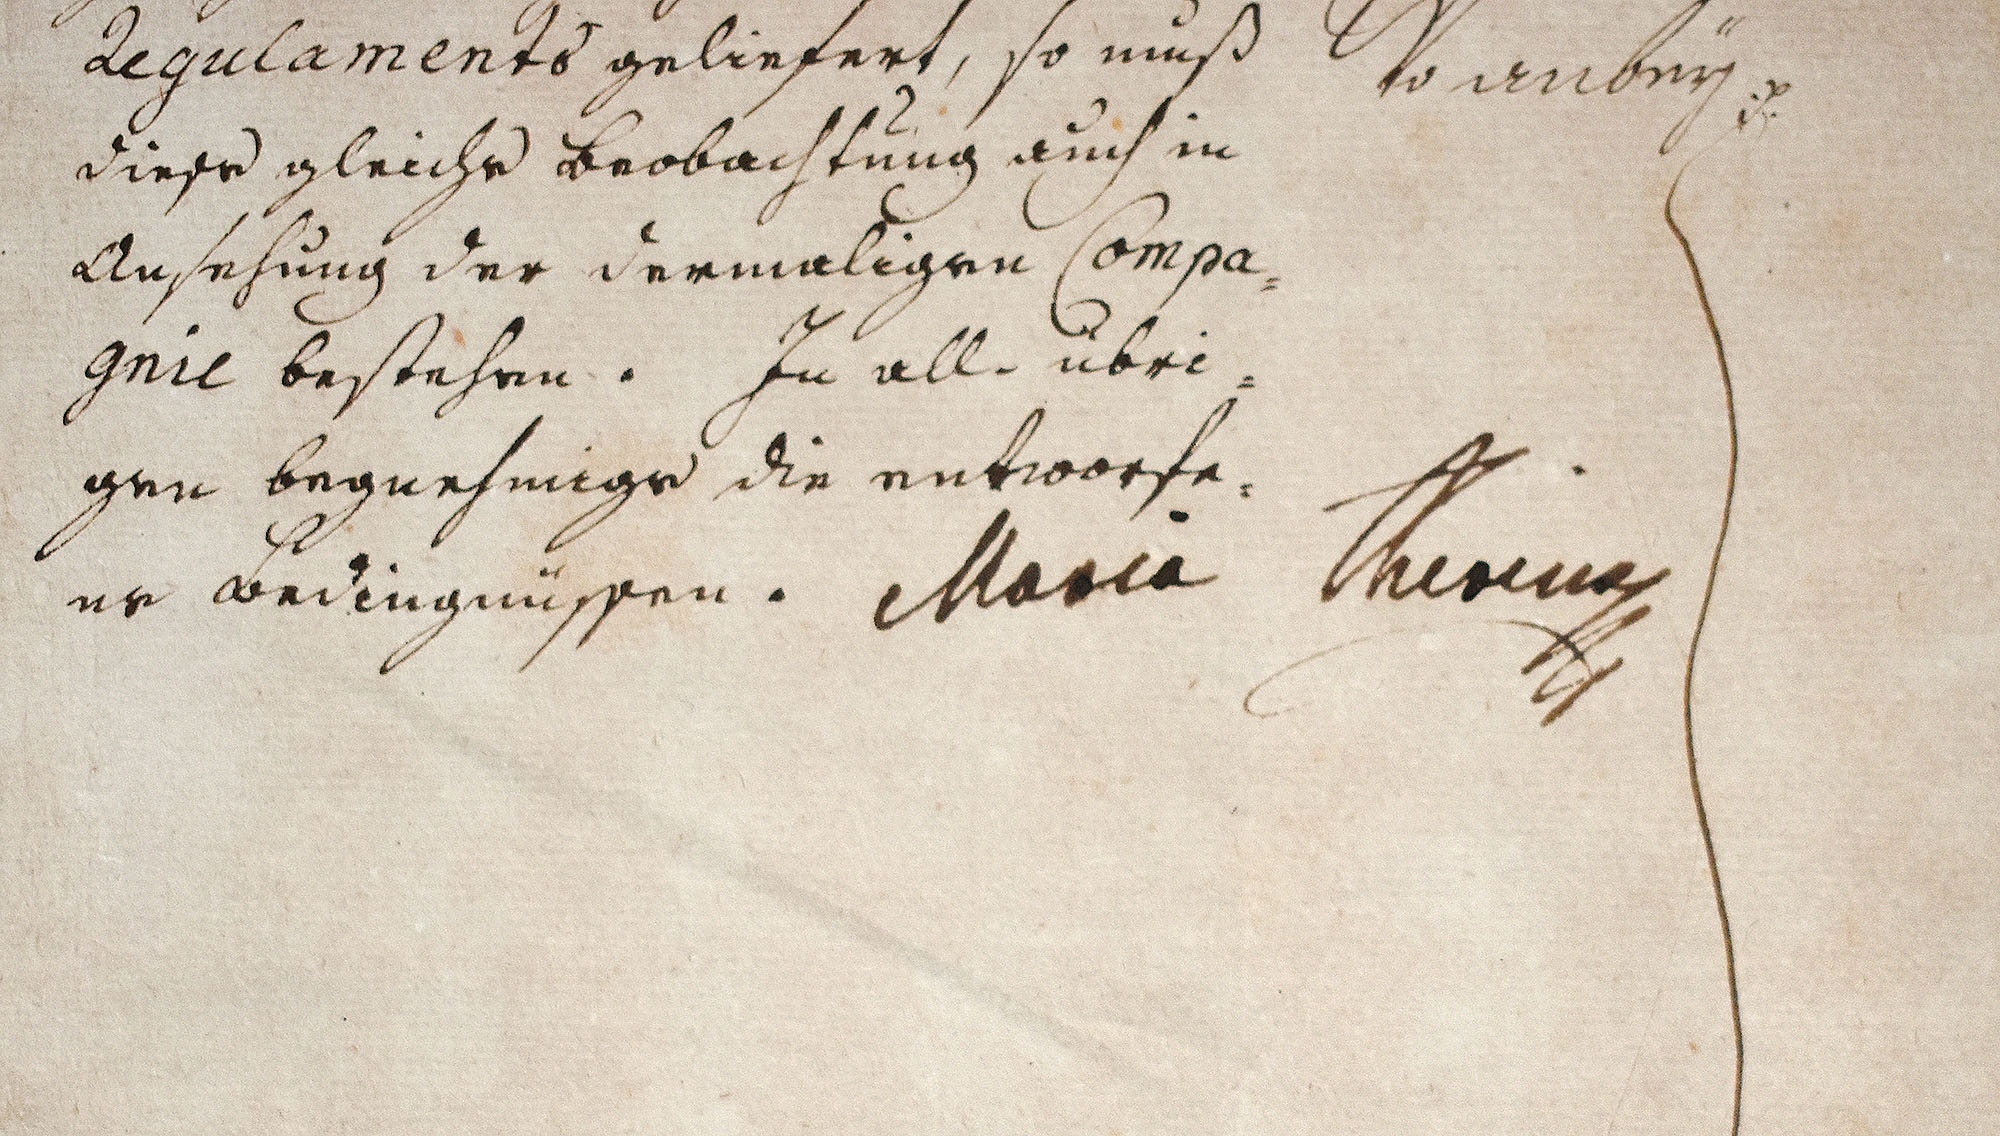 Regulaments geliefert, so muß
diese gleiche Beobachtung auch in
Ansehung der dermaligen Compa=
gnie bestehen. In all- übri=
gen begnehmige die entworfe=
ne Bedingnüssen. Maria Theresia